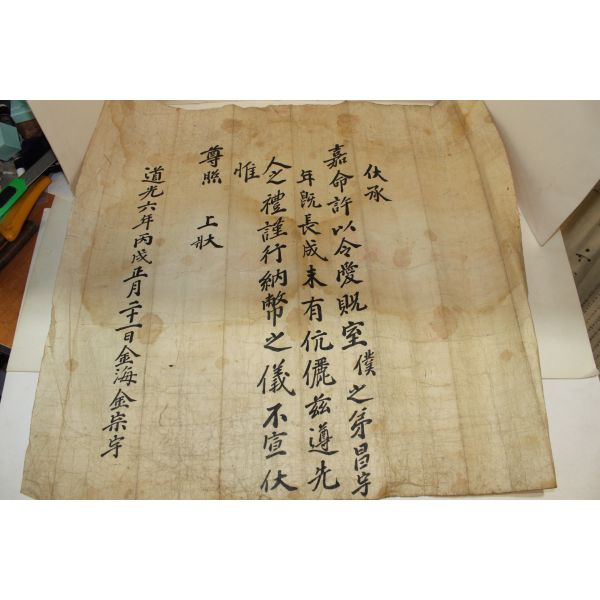 伏承
嘉命許以令愛貺室僕之弟昌宇
年旣長成未有伉儷玆遵先
人之禮謹行納幣之儀不宣伏
惟
尊照 上狀
道光六年丙戌正月二十一日金海金宗宇